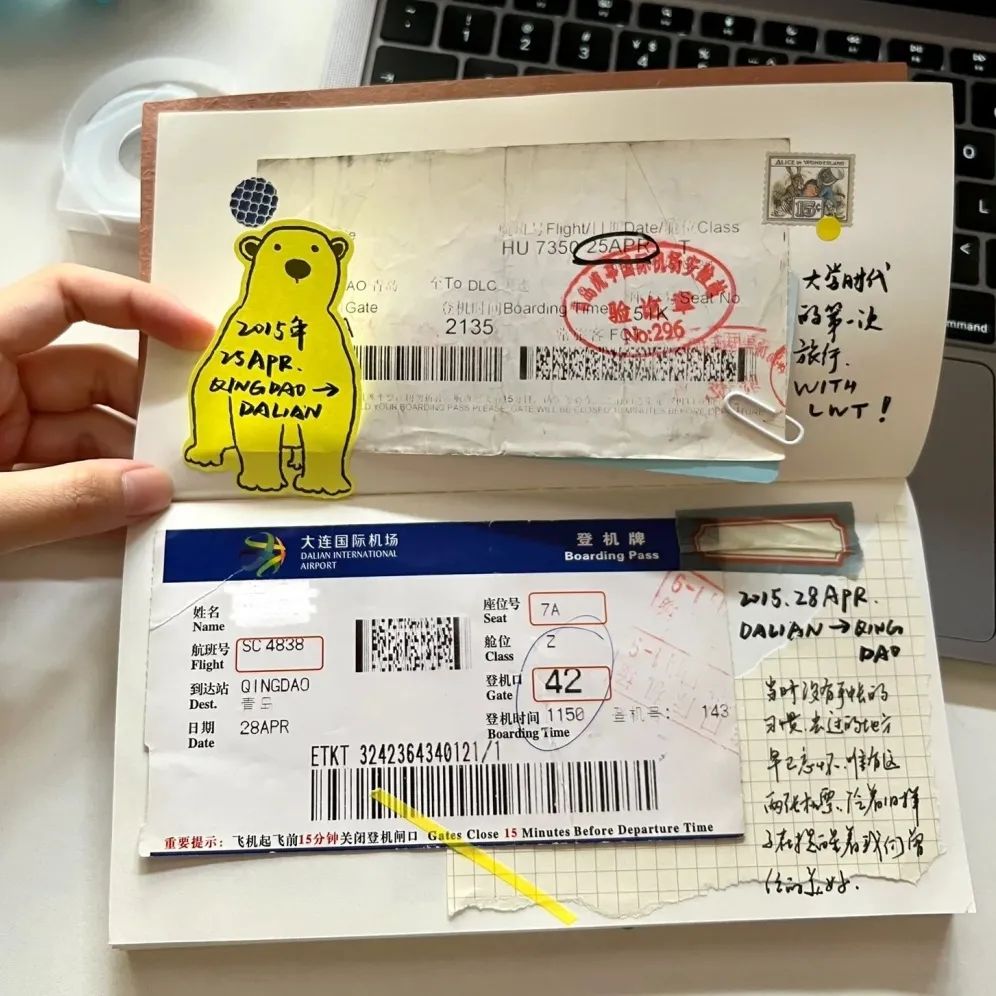 ALICE IN WONDERLAND
15¢
Flight/日期Date/舱位Class
HU 7350 25APR T
AO 青岛 至To DLC 大连
Gate 登机时间Boarding Time Seat No
2135 51K
验讫章
No:296
D YOUR BOARDING PASS PLEASE, GATE WILL BE CLOSED 10 MINUTES BEFORE DEPARTURE
2015年
25APR.
QINGDAO→
DALIAN
大学时代
的第一次
旅行.
WITH
LWT!
大连国际机场
DALIAN INTERNATIONAL
AIRPORT
登机牌
Boarding Pass
姓名
Name
航班号 SC 4838
Flight
到达站 QINGDAO
Dest. 青岛
日期 28APR
Date
座位号 7A
Seat
舱位 Z
Class
登机口 42
Gate
登机时间 1150 登机号: 143
Boarding Time
ETKT 3242364340121/1
重要提示: 飞机起飞前15分钟关闭登机闸口 Gates Close 15 Minutes Before Departure Time
2015.28APR.
DALIAN→QING
DAO
当时没有手帐的
习惯.去过的地方
早已忘怀.唯有这
两张机票.
我们曾
经的美好.
command